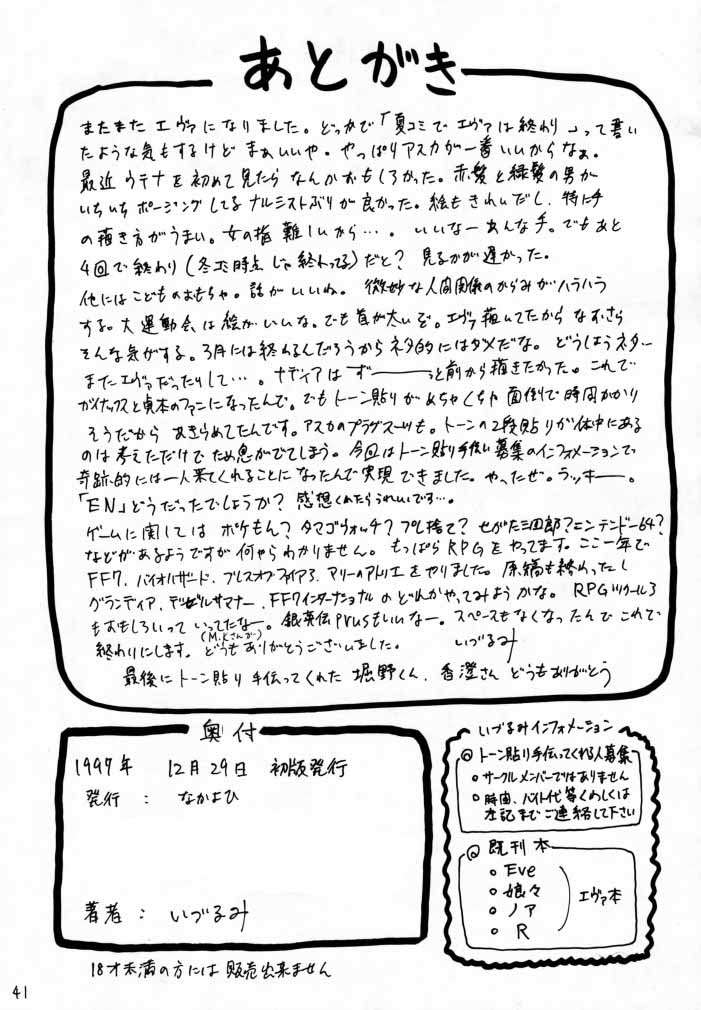 あとがき
またまた エヴァになりました。どっかで「夏コミで エヴァは終わり」って書い
たような気もするけど まぁいいや。やっぱりアスカが一番いいからなぁ。
最近 ウテナを初めて見たら なんかおもしろかった。赤髪と緑髪の男が
いちいち ポージングしてる ナルシストぶりが良かった。絵もきれいだし、特に手
の描き方がうまい。女の指 難しいから…。いいなーあんな手。でもあと
4回で終わり(冬コミ時点じゃ終わってる)だと? 見るのが遅かった。
他にはこどものおもちゃ。話がいいね。 微妙な人間関係のからみがハラハラ
する。大運動会は絵がいいな。でも首が太いぞ。エヴァ描いてたからなおさら
そんな気がする。3月には終わるんだろうからネタ的にはダメだな。どうしようネタ…
またエヴァだったりして…。ナディアは ず――っと前から描きたかった。これで
ガイナックスと貞本のファンになったんで。でもトーン貼りがめちゃくちゃ 面倒で時間かかり
そうだから あきらめてたんです。アスカのプラグスーツも。トーンの2段貼りが体中にある
のは考えただけで ため息がでてしまう。今回はトーン貼り手伝い募集のインフォメーションで
奇跡的には一人来てくれることになったんで実現できました。やったぜ。ラッキー。
「EN」どうだったでしょうか? 感想くれたらうれしいです…。
ゲームに関しては ポケもん? タマゴウォッチ? プレ捨て? せがた三四郎? ニンテンドー64?
などがあるようですが何やらわかりません。もっぱらRPGをやってます。ここ一年で
FF7、バイオハザード、ブレスオブファイア3、マリーのアトリエをやりました。原稿も終わったし
グランディア、デビルサマナー、FF7インターナショナルのどれかやってみようかな。RPGツクール3
もおもしろいって いってたなー。銀英伝Plusもいいなー。スペースもなくなったんで これで
(M.Kさんが)
終わりにします。どうもありがとうございました。 いづるみ
最後にトーン貼り手伝ってくれた 堀野くん、香澄さん どうもありがとう
奥付
1997年 12月29日 初版発行
発行 : なかよひ
著者 : いづるみ
18才未満の方には 販売出来ません
いづるみインフォメーション
◎トーン貼り手伝ってくれる人募集
○サークルメンバーではありません
○時間、バイト代等くわしくは
左記までご連絡して下さい
◎既刊本
○Eve
○娘々
○ノア
○R
エヴァ本
41